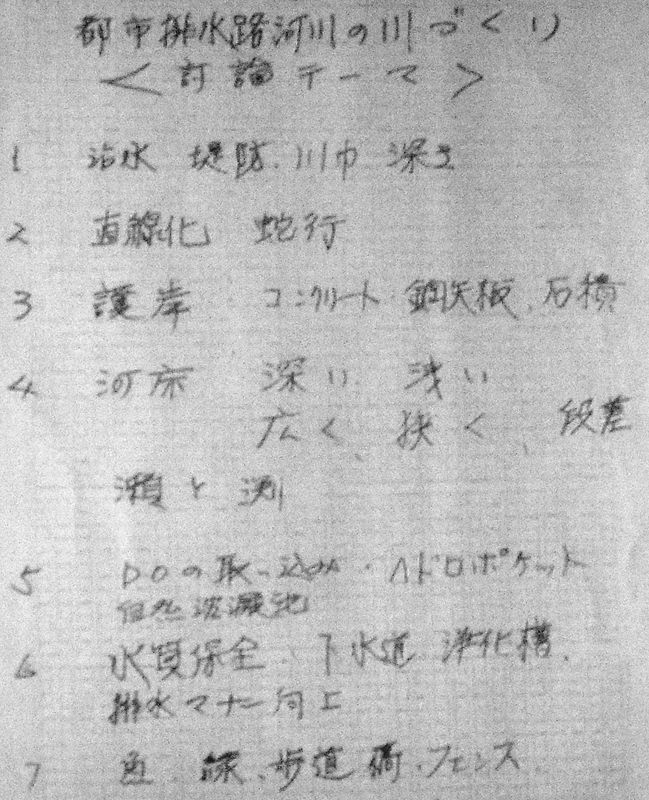 都市排水路河川の川づくり
<討論テーマ>
1 治水 堤防、川巾 深さ
2 直線化 蛇行
3 護岸 コンクリート 鋼矢板、石積
4 河床 深い 浅い
広く、狭く、段差
瀬と淵
5 DOの取り込み・ヘドロポケット
自然沈澱池
6 水質保全、下水道 浄化槽、
排水マナー向上
7 魚 緑、歩道 橋、フェンス